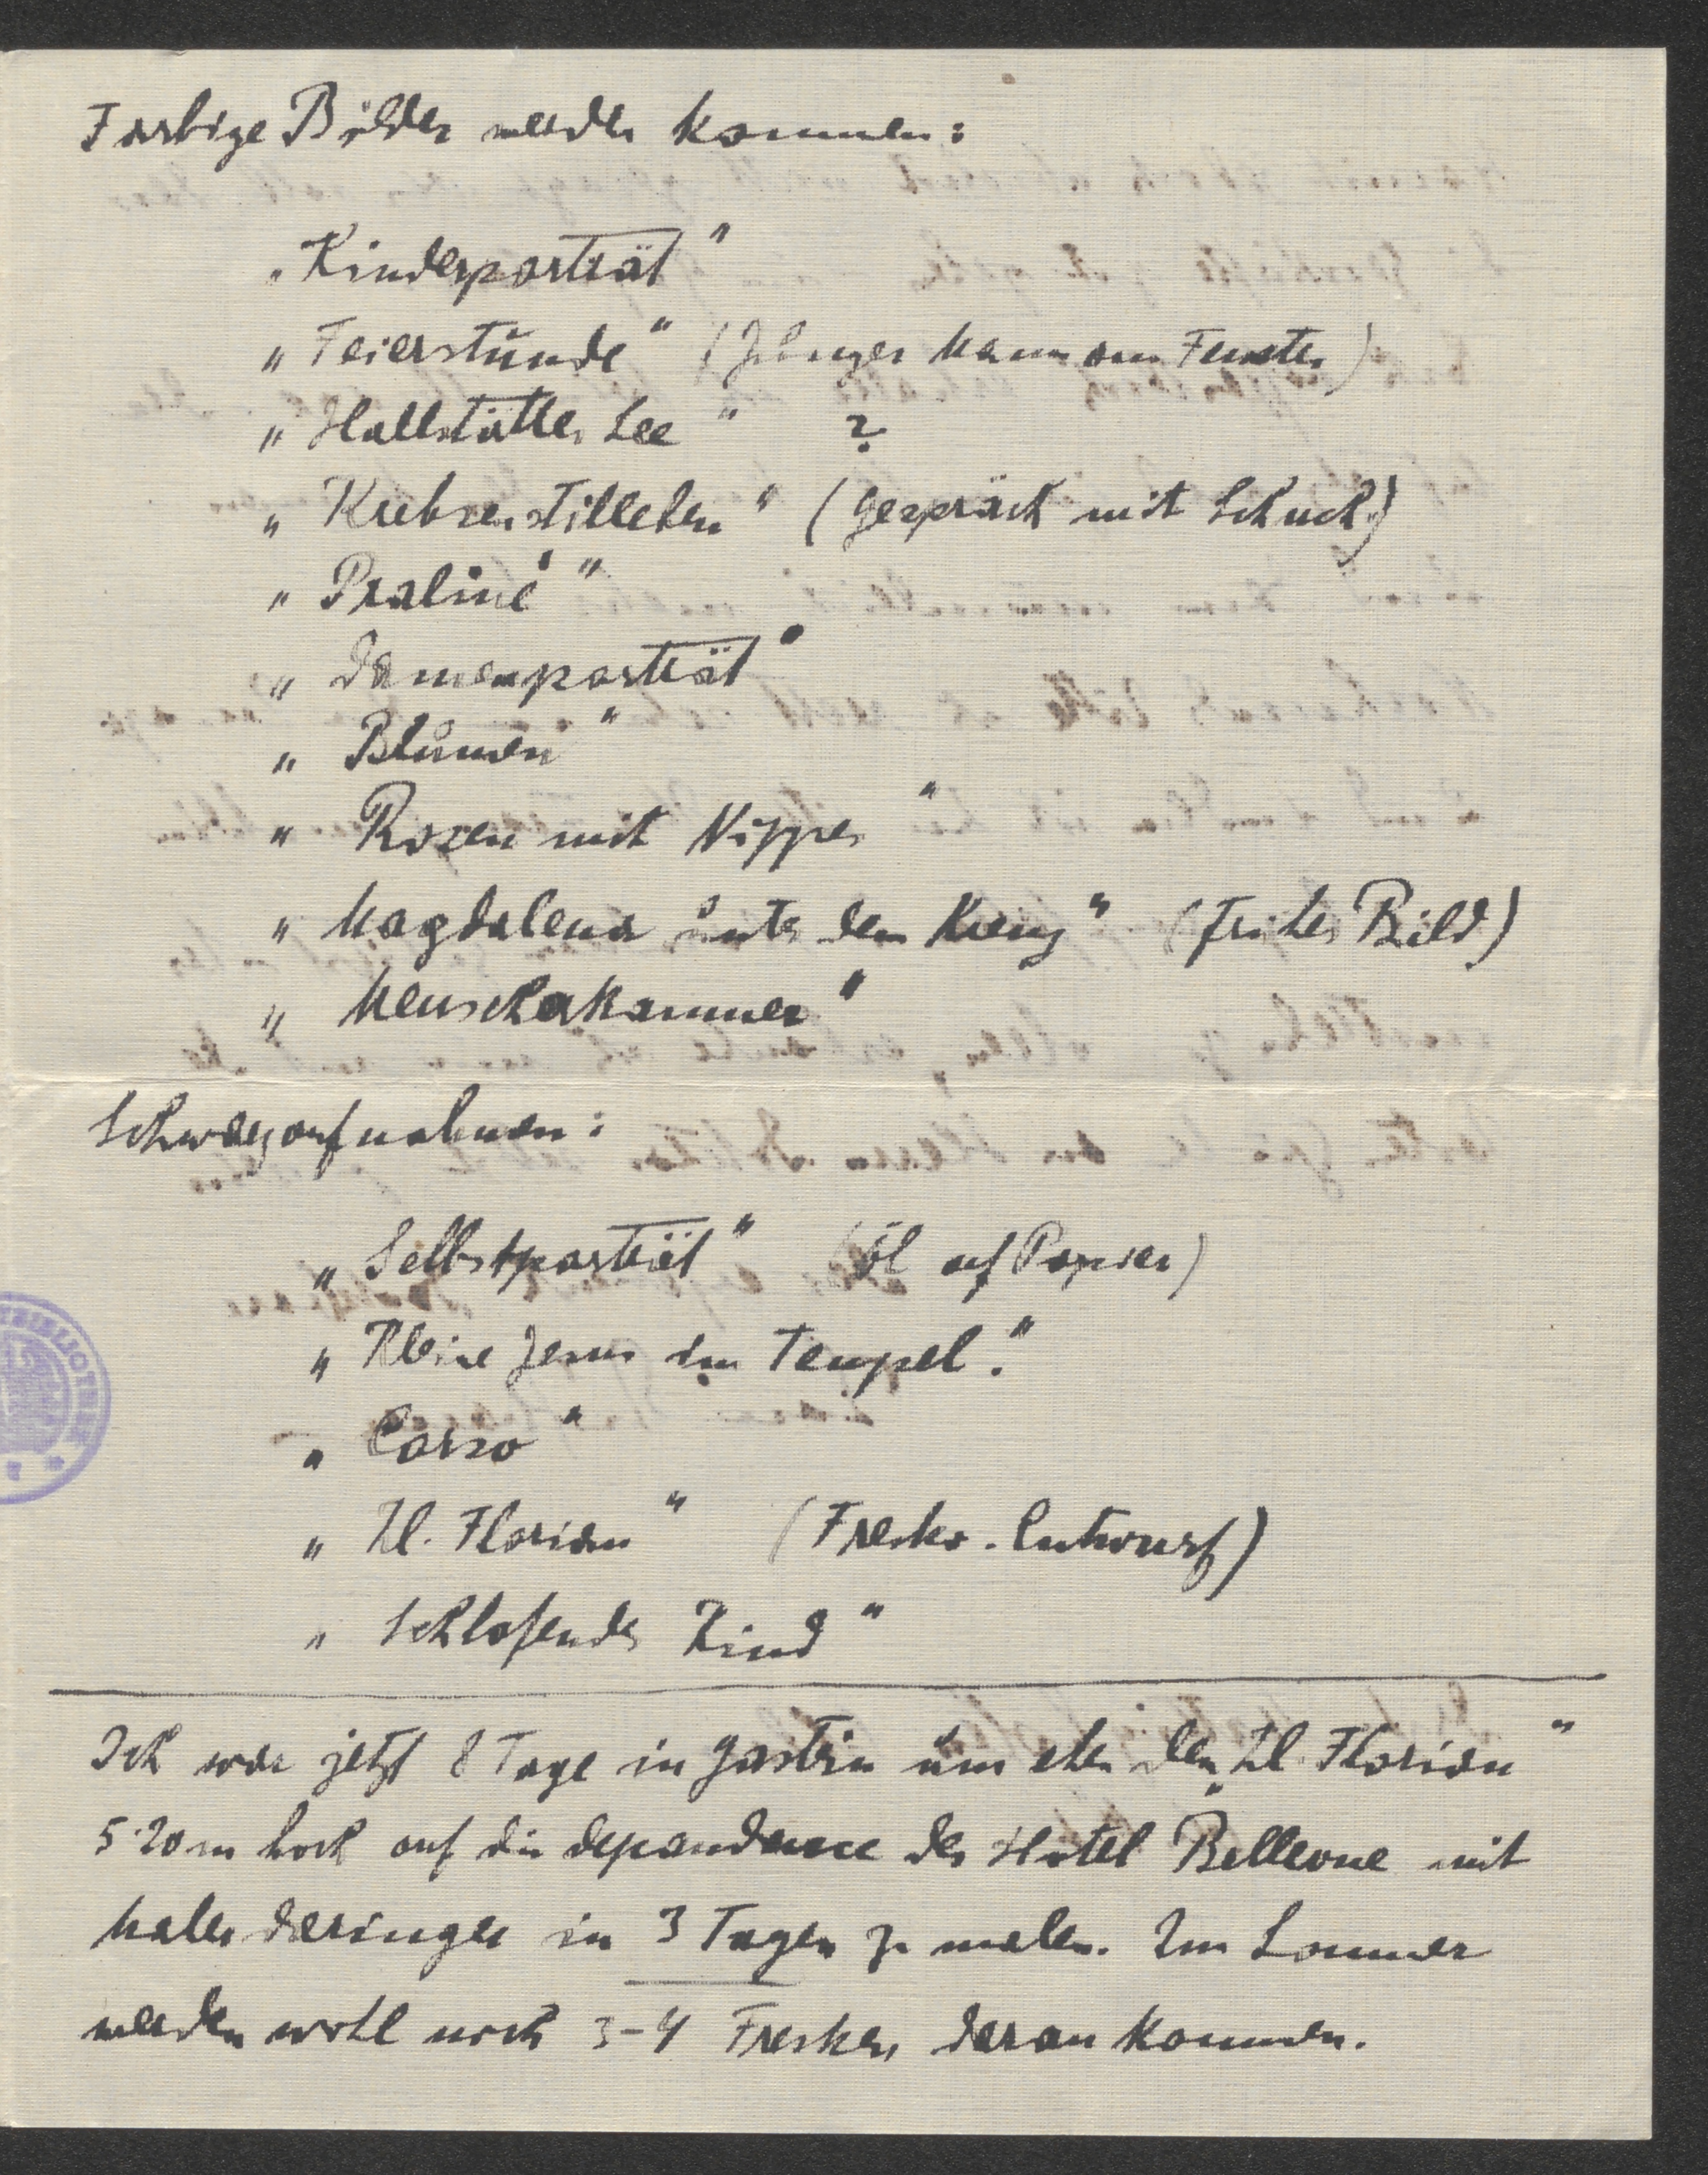 Farbige Bilder werden kommen:
„Kinderporträt“
„Feierstunde“ (Junger Mann am Fenster)
„Hallstätter See“ ?
„Krebsenstilleben“ (Gespräch mit Schuch)
„Praliné“
„Damenporträt“
„Blumen“
„Rosen mit Nippes“
„Magdalena unter dem Kreuz“ (frühes Bild)
„Menscherkammer“
Schwarzaufnahmen:
„Selbstporträt“ (Öl auf Papier)
„Kleine Jesus im Tempel.“
„Corso“
„Hl. Florian“ (Fresko-Entwurf)
„Schlafendes Kind“
Ich war jetzt 8 Tage in Gastein um eben den „Hl. Florian“
5·20 m hoch auf die Dependance des Hotel Bellevue mit
Maler Deringer in 3 Tagen zu malen. Im Sommer
werden wohl noch 3-4 Fresken daran kommen.